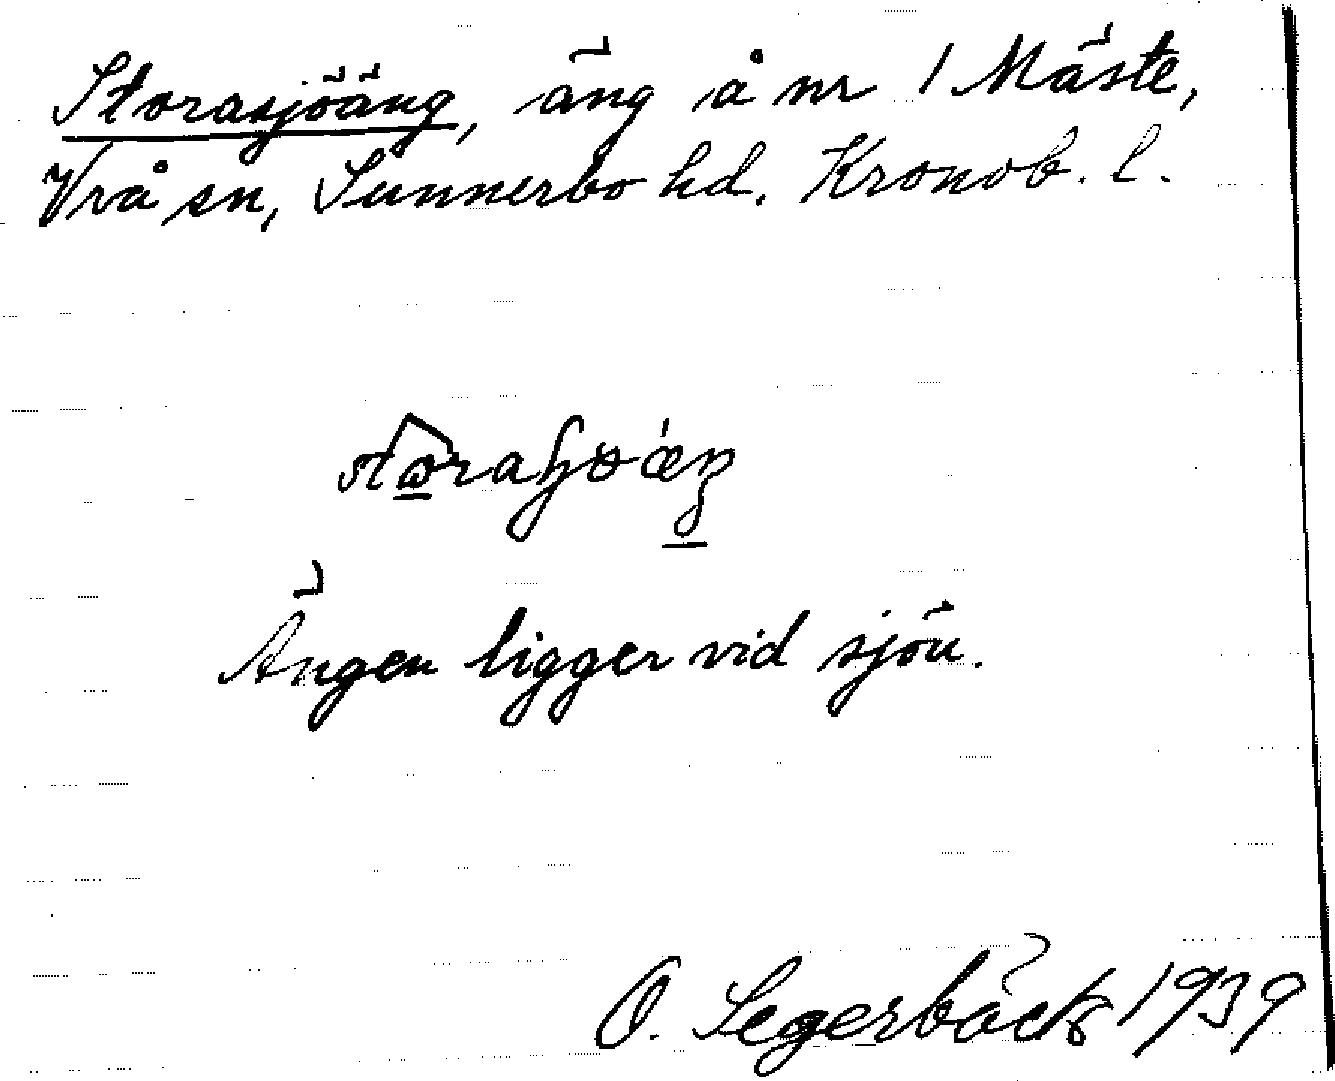 Storasjöäng, äng å nr 1 Mäste,
Vrå sn, Sunnerbo hd. Kronob. l.
Ängen ligger vid sjön.
O. Segerbäck 1939